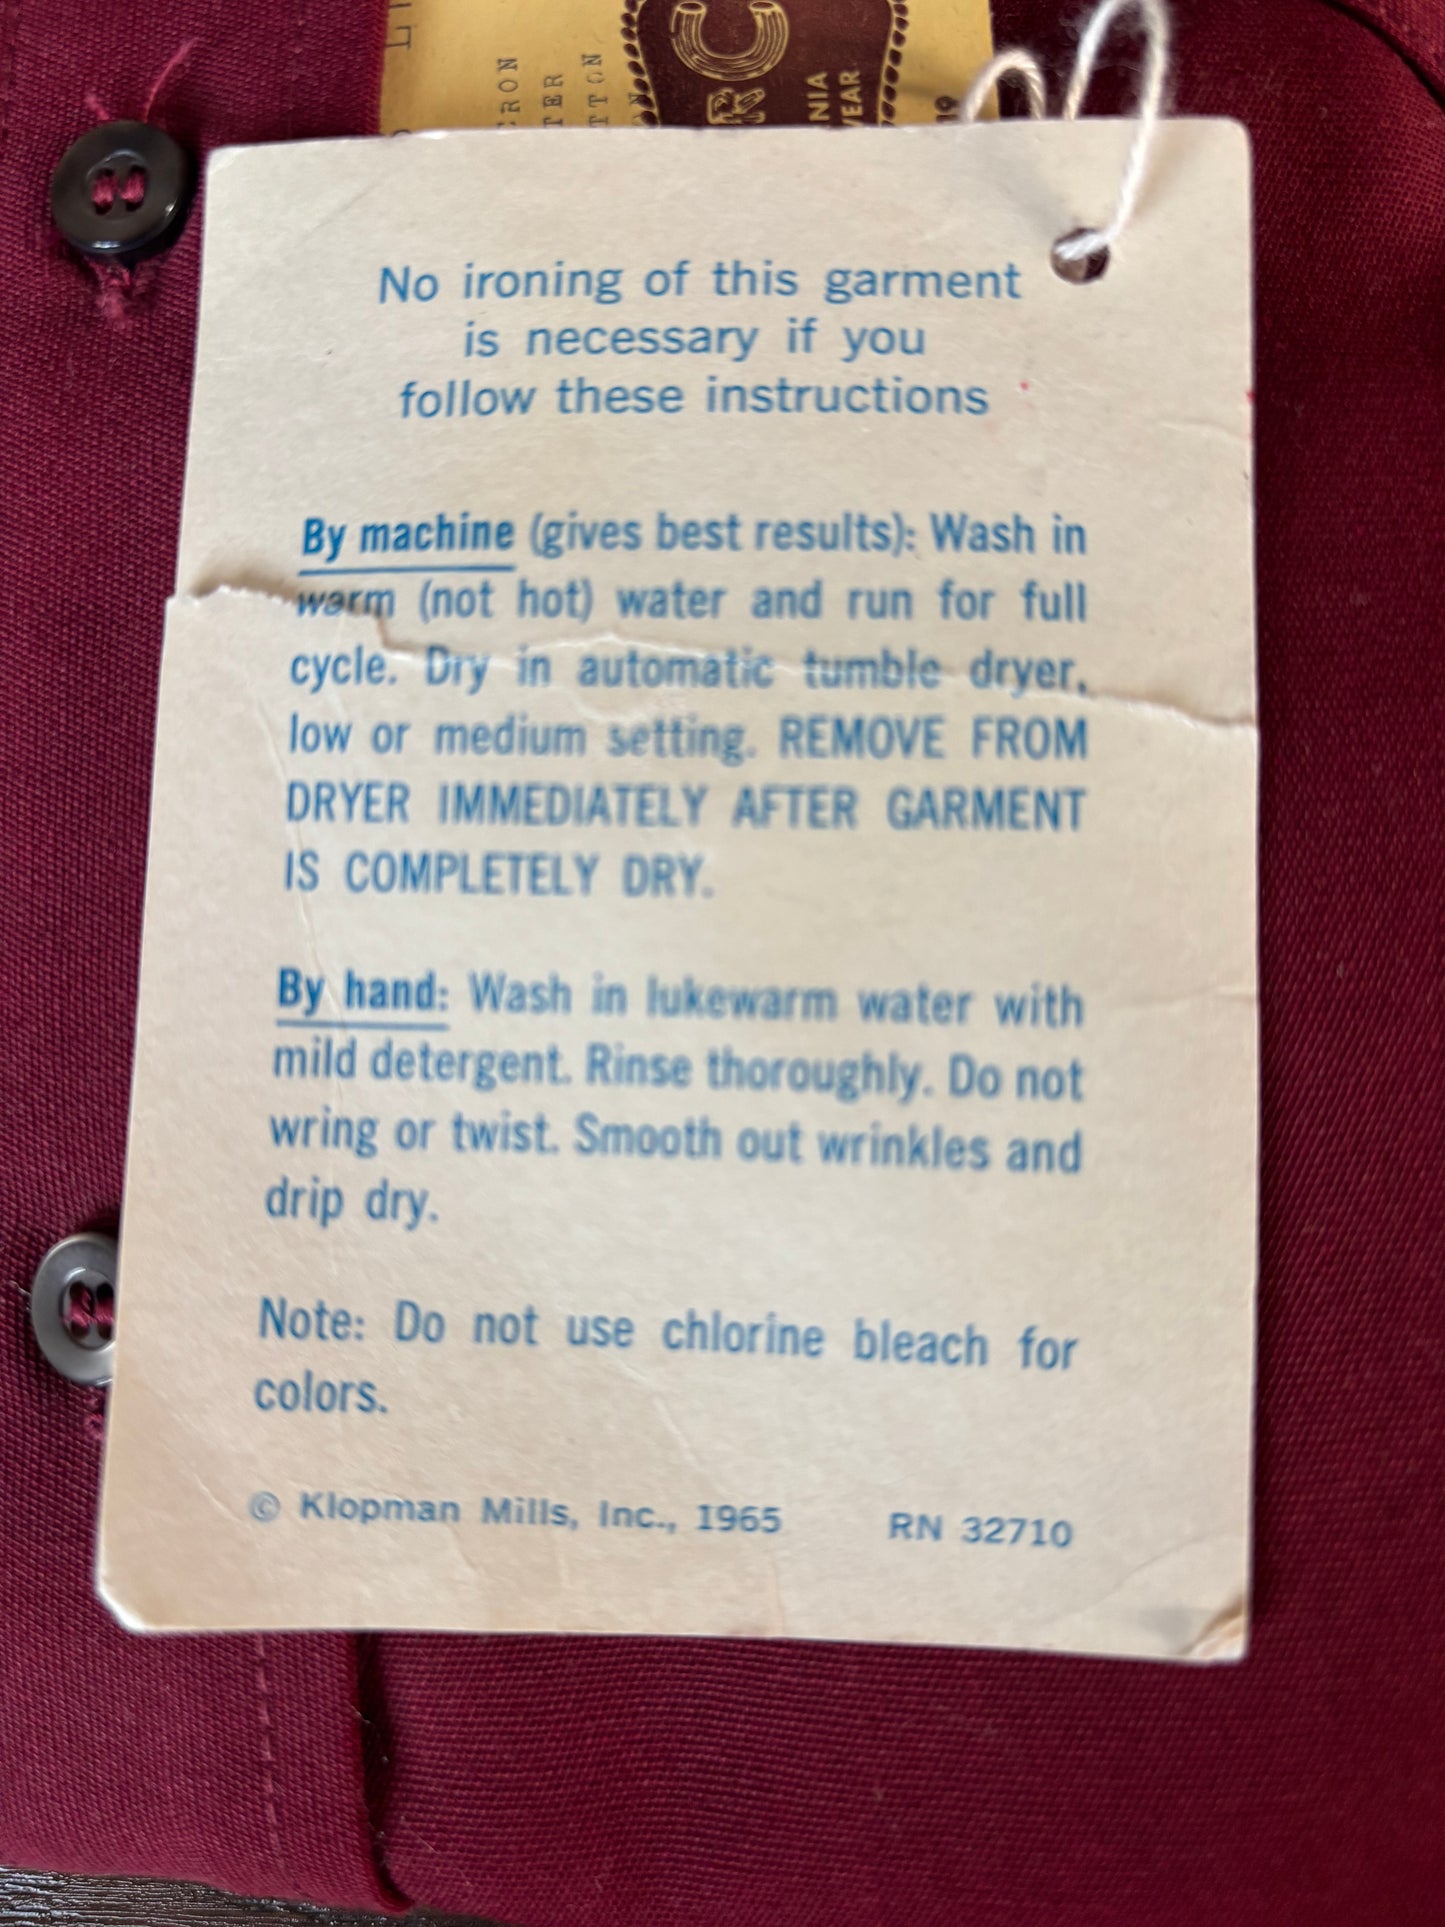 No ironing of this garment
is necessary if you
follow these instructions
By machine (gives best results): Wash in
warm (not hot) water and run for full
cycle. Dry in automatic tumble dryer,
low or medium setting. REMOVE FROM
DRYER IMMEDIATELY AFTER GARMENT
IS COMPLETELY DRY.
By hand: Wash in lukewarm water with
mild detergent. Rinse thoroughly. Do not
wring or twist. Smooth out wrinkles and
drip dry.
Note: Do not use chlorine bleach for
colors.
© Klopman Mills, Inc., 1965 RN 32710